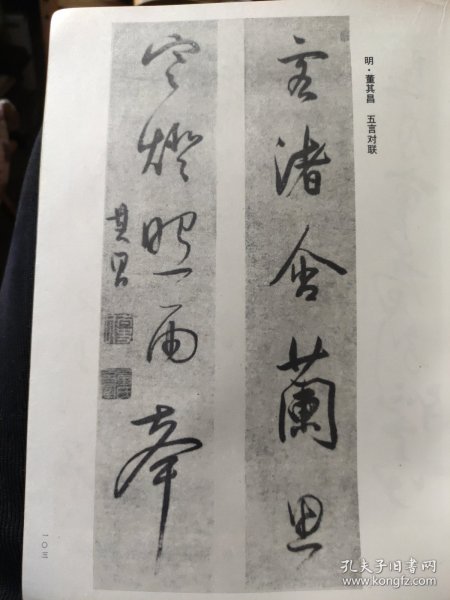 明·董其昌 五言对联
渚含蘭思
燈照雨
其昌
一〇三
孔夫子旧书网
www.kongfz.com